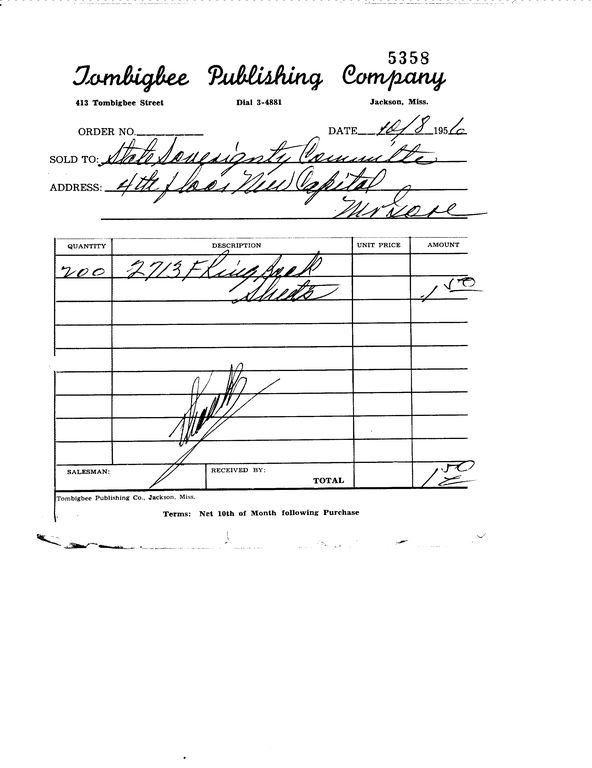 5358
Tombigbee Publishing Company
413 Tombigbee Street Dial 3-4881 Jackson, Miss.
ORDER NO. DATE 10/8 1956
SOLD TO: State Soverignty Committe
ADDRESS: 4th floor New Capital
Mr Gore
QUANTITY DESCRIPTION UNIT PRICE AMOUNT
200 2713 F Ring Book
Sheets 1 50
SALESMAN: RECEIVED BY:
TOTAL 1 50
Tombigbee Publishing Co., Jackson, Miss.
Terms: Net 10th of Month following Purchase